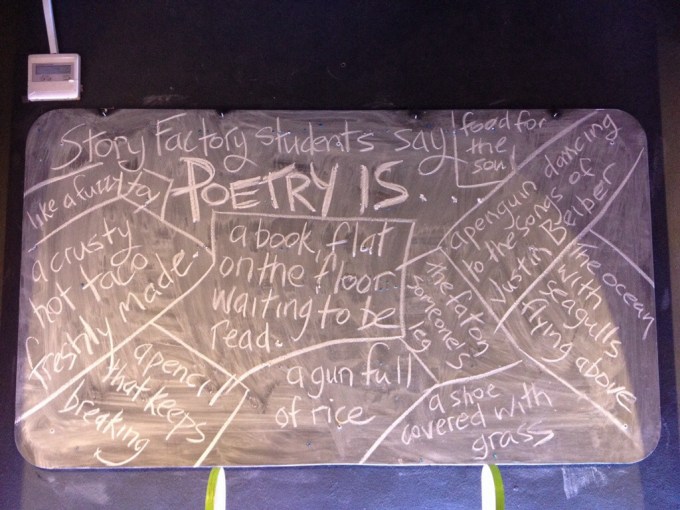 Story Factory students say
POETRY IS...
food for
the
soul
like a fuzzy toy
a crusty
hot taco
freshly made.
a book, flat
on the floor
waiting to be
read.
a penguin dancing
to the songs of
Justin Beiber
The ocean
with
seagulls
flying above
The fat on
someone's
leg
a pencil
that keeps
breaking
a gun full
of rice
a shoe
covered with
grass